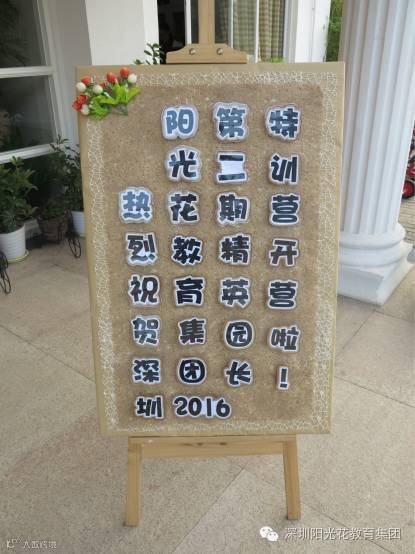 热烈祝贺深圳
阳光花教育集团2016
第二期精英园长
特训营开营啦!
深圳阳光花教育集团
大数跨境